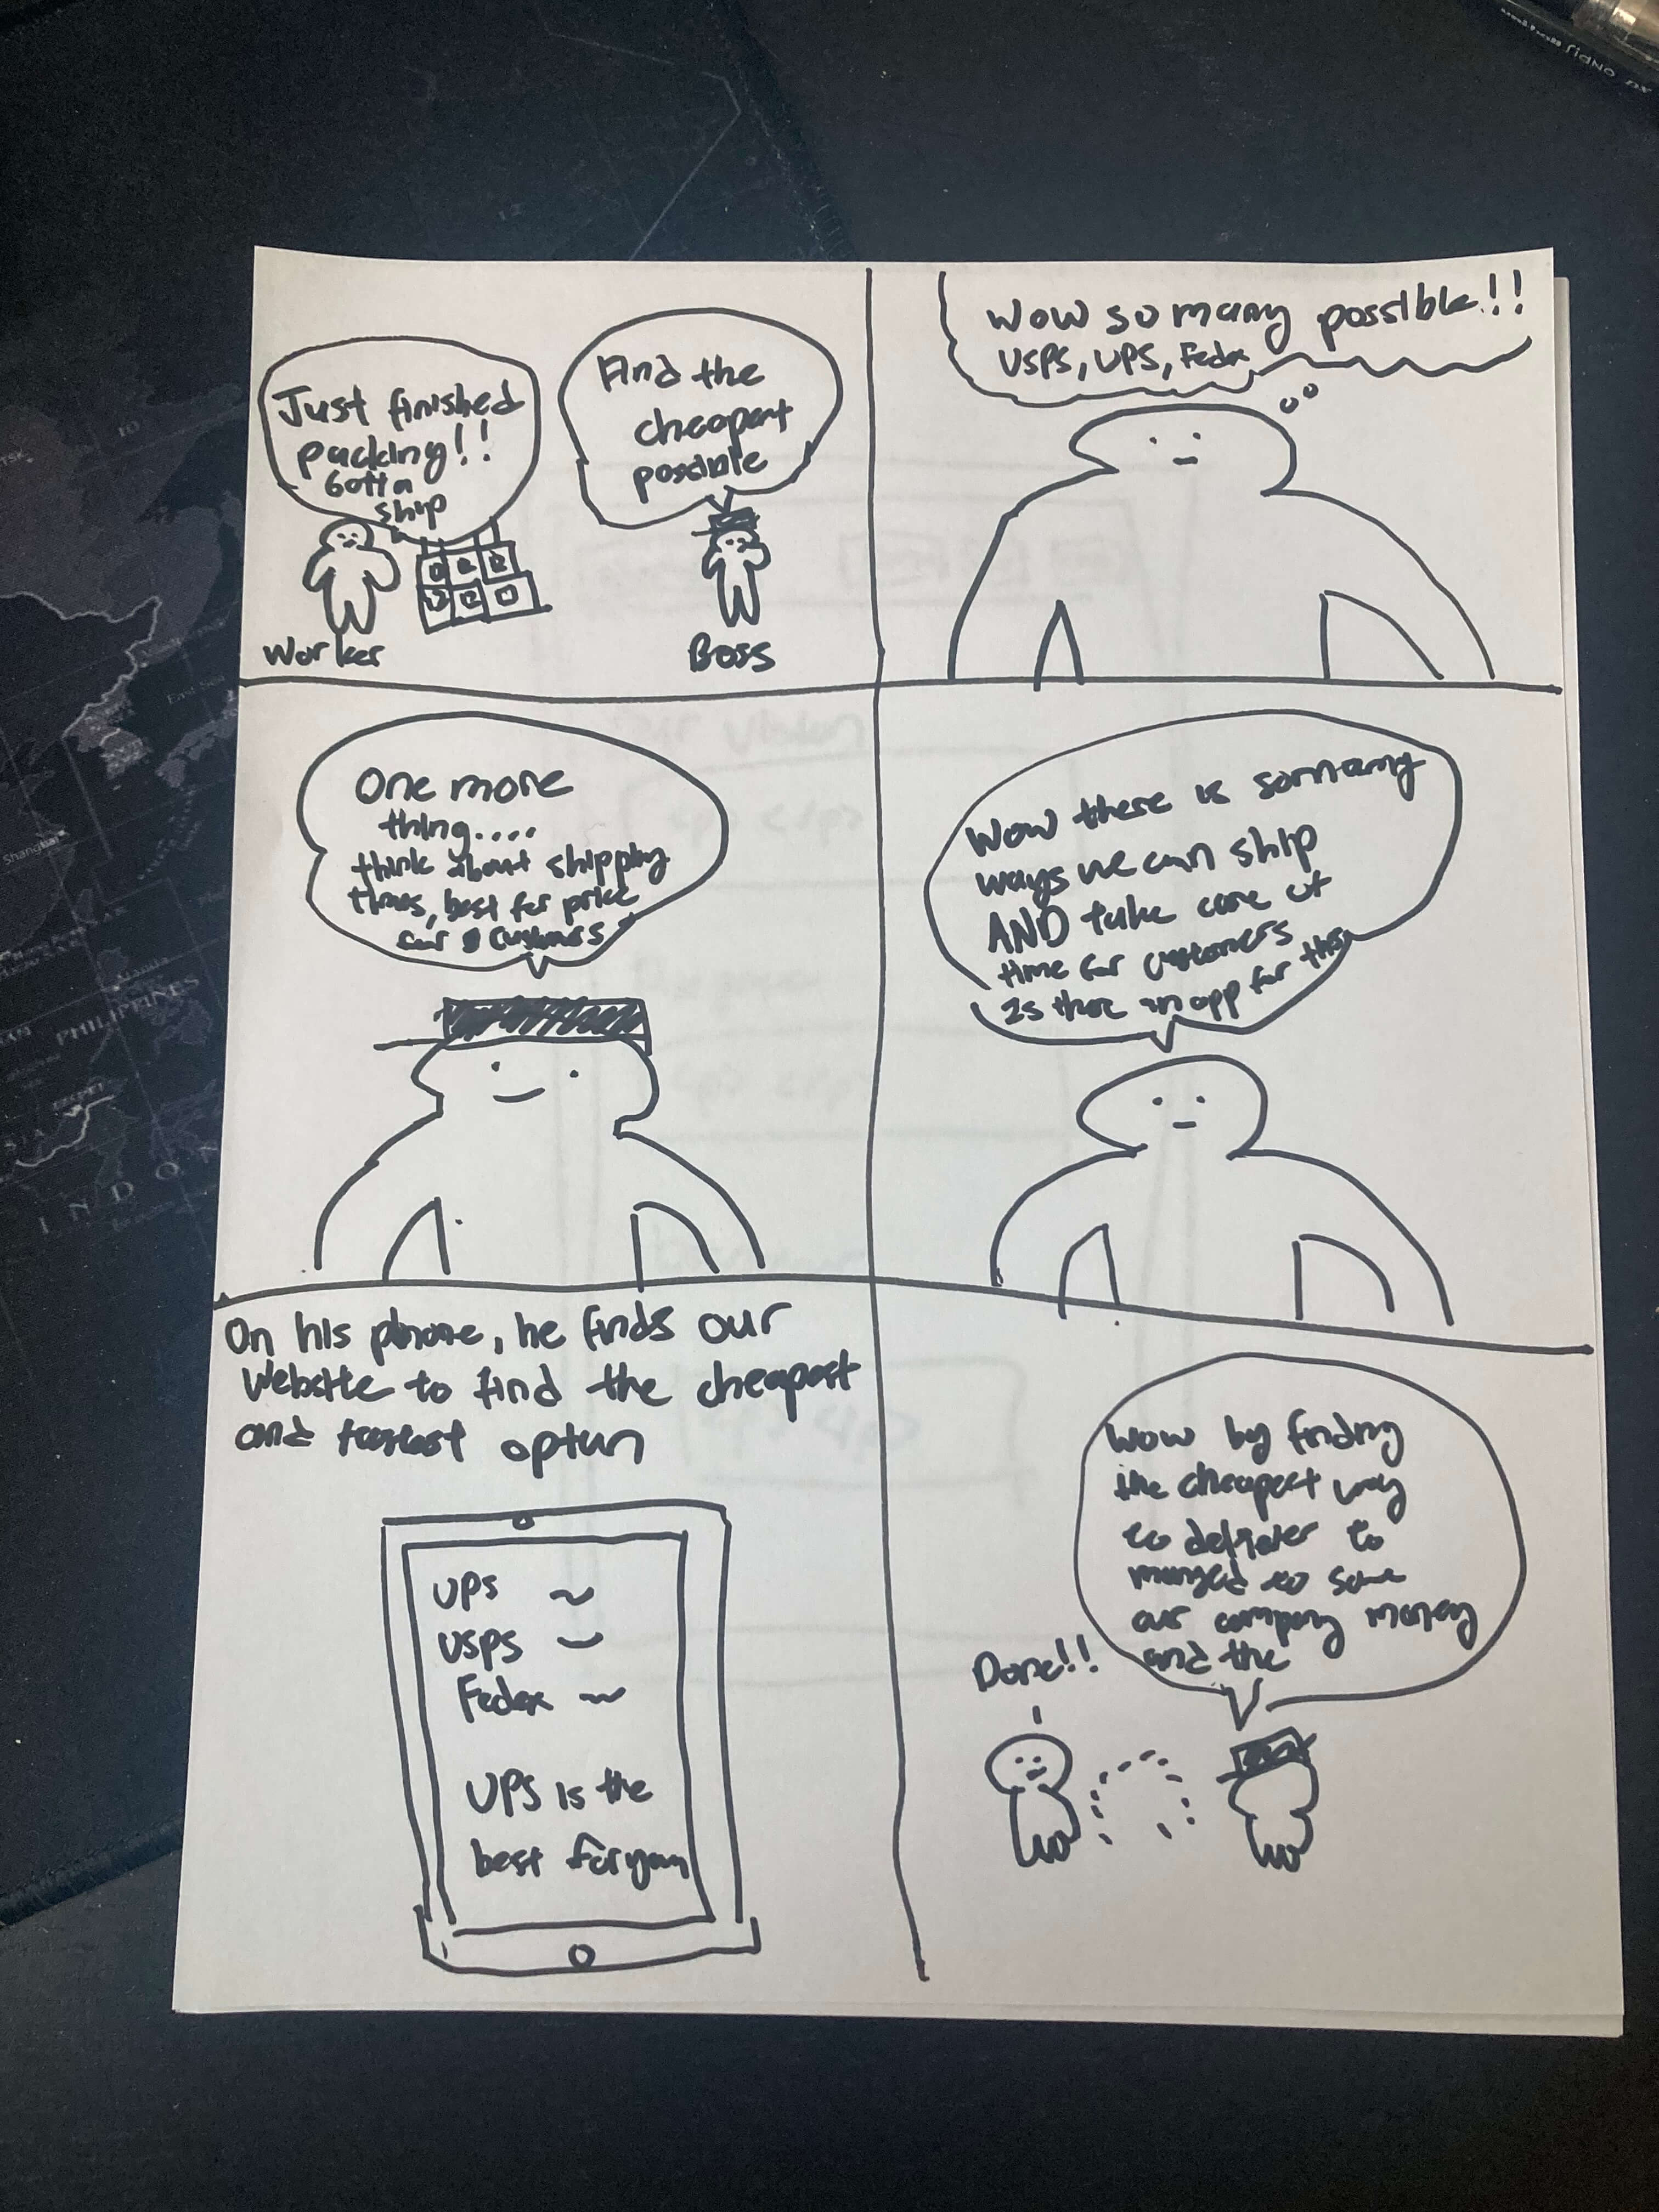 Just finished
packing!!
Gotta
ship
Find the
cheapest
possible
Worker
Boss
Wow so many possible!!
USPS, UPS, Fedex
One more
thing....
think about shipping
times, best for price
our customers
Wow there is somany
ways we can ship
AND take care of
time for customers
Is there an app for this
On his phone, he finds our
website to find the cheapest
and fastest option
UPS
USPS
Fedex
UPS is the
best for you
Done!!
Wow by finding
the cheapest way
to deliver to
to save
our company money
and the
PHILIPPINES
Shanghai
INDO